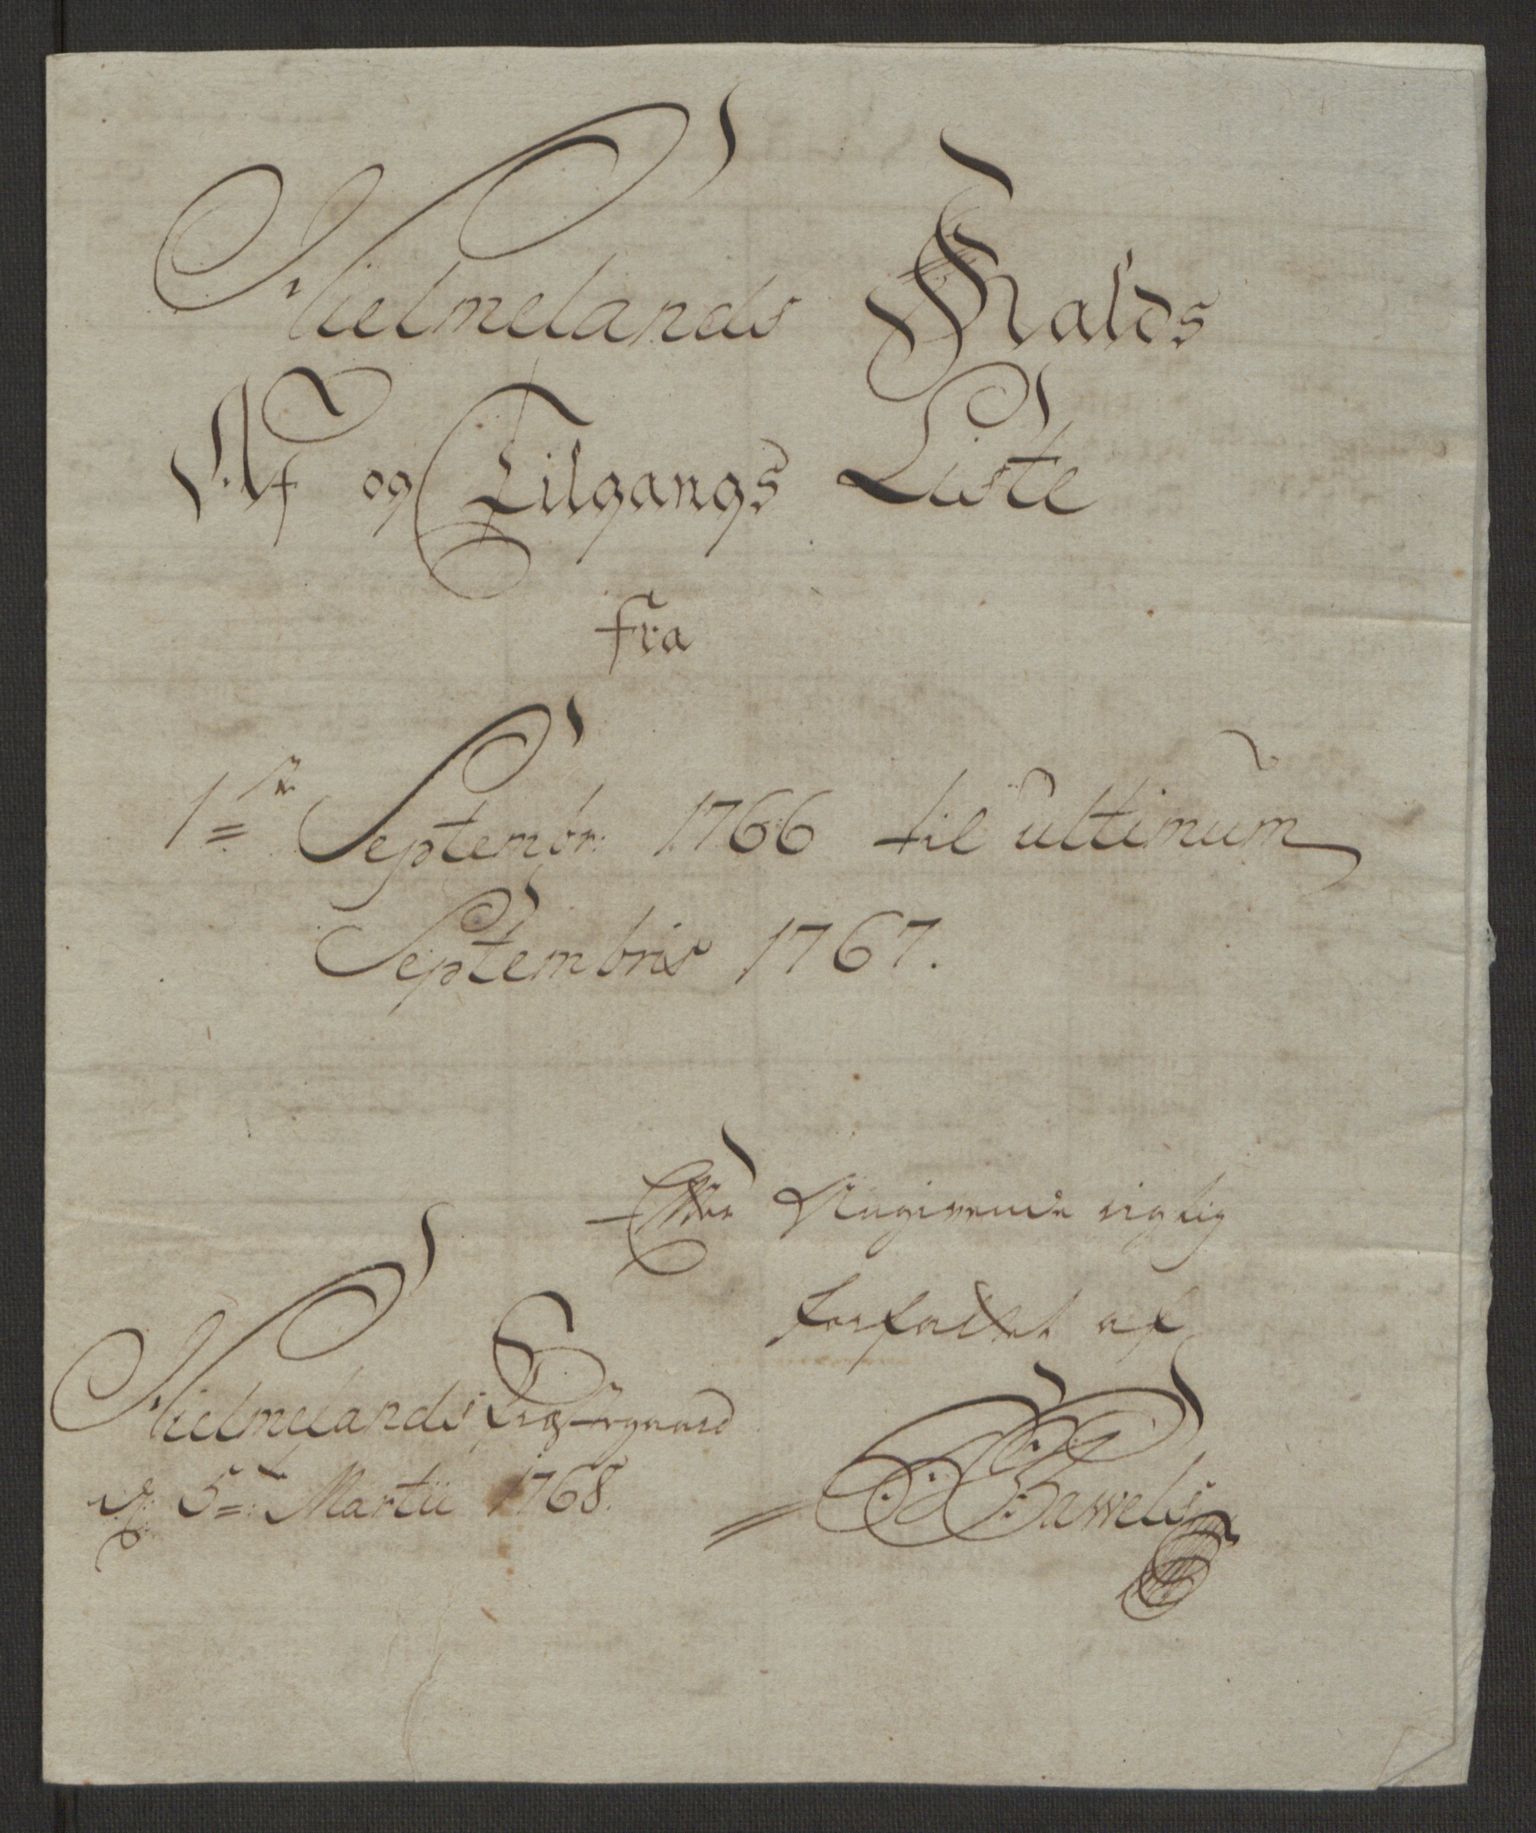 Hielmelands Kalds
Af og Tilgangs Liste
fra
1te Septembr: 1766 til ultimum
Septembris 1767.
Efter Angivende rigtig
forfattet af
Hielmelands Præstegaard
d: 5te Martii 1768.
Bawels